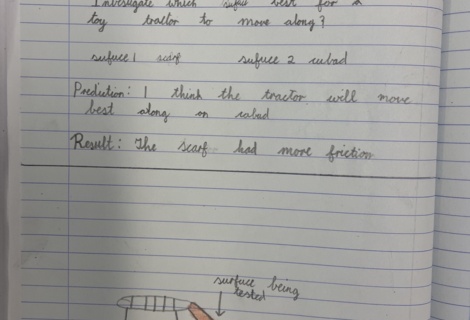 Investigate which surfue best for a
toy tractor to move along?
sufuce 1 scarf sufuce 2 cubad
Prediution: I think the tractor will move
best along on cabud
Result: The scarf had more friction
surface being
tested